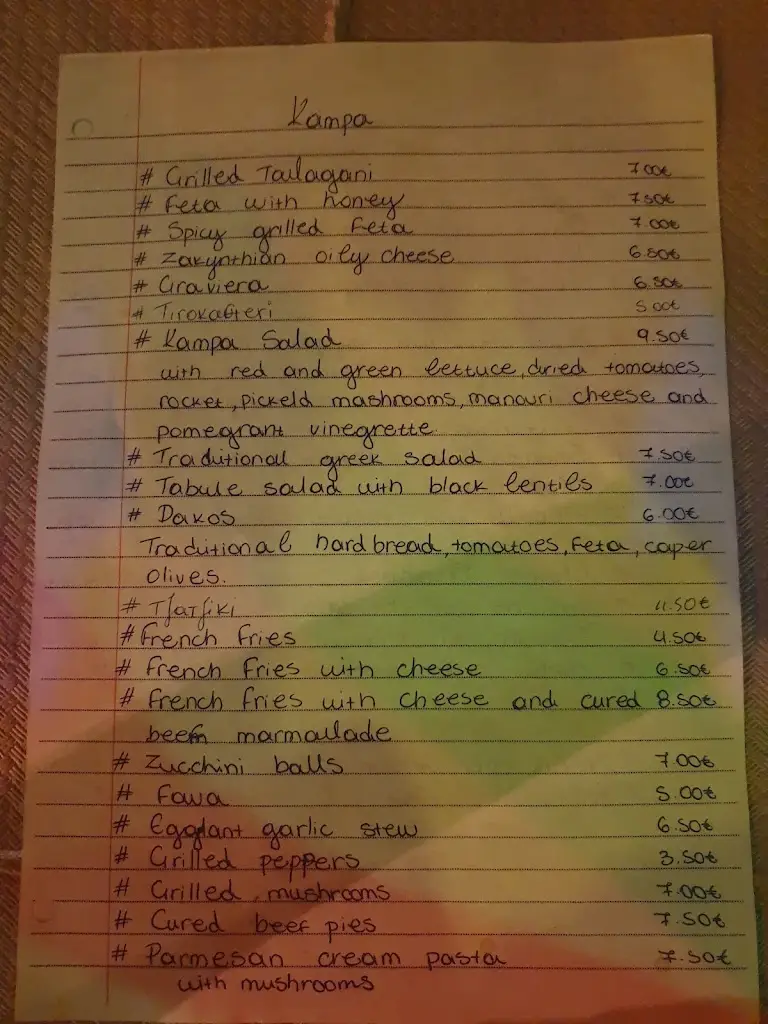 Kampa
# Grilled Talagani 7.00€
# Feta with honey 7.50€
# Spicy grilled Feta 7.00€
# Zakynthian oily cheese 6.50€
# Graviera 6.50€
# Tirokafteri 5.00€
# Kampa Salad 9.50€
with red and green lettuce, dried tomatoes,
rocket, pickeld mashrooms, manouri cheese and
pomegrant vinegrette
# Traditional greek salad 7.50€
# Tabule salad with black lentils 7.00€
# Dakos 6.00€
Traditional hard bread, tomatoes, Feta, caper
olives.
# Tzatziki 4.50€
# French fries 4.50€
# French fries with cheese 6.50€
# French fries with cheese and cured 8.50€
beef marmallade
# Zucchini balls 7.00€
# Fava 5.00€
# Eggplant garlic stew 6.50€
# Grilled peppers 3.50€
# Grilled mushrooms 7.00€
# Cured beef pies 7.50€
# Parmesan cream pasta 7.50€
with mushrooms